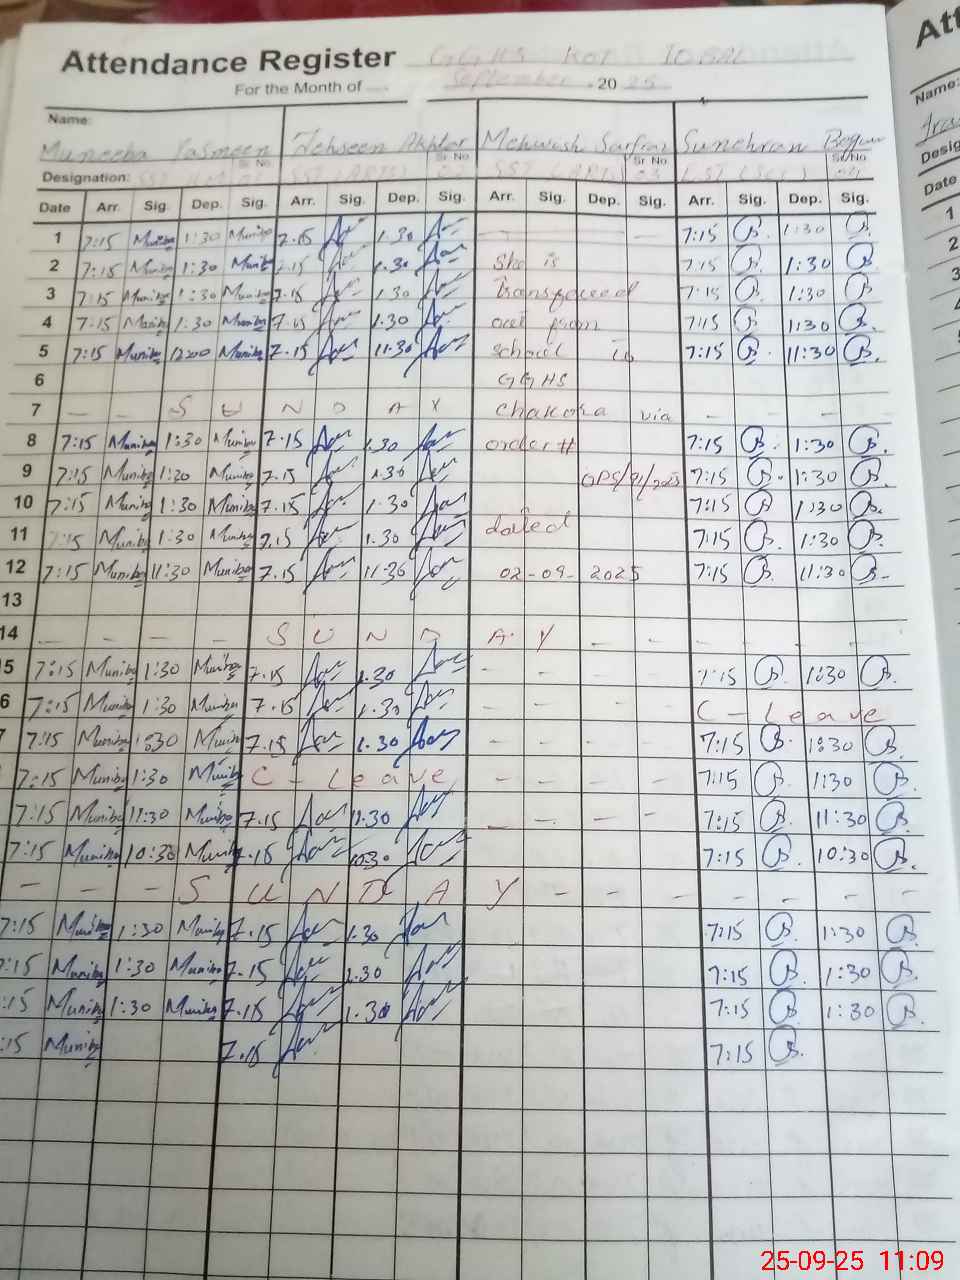 Attendance Register GGHS Kot Iqbal
For the Month of September 2025
Name:
Muneeba Yasmeen Tehseen Akhter Mehwash Sarfraz Sunehran Begum
Sr. No Sr. No Sr. No Sr. No
Designation: 01 SST (ARTS) 02 SST (ARTS) 03 EST (Sci) 04
Date Arr. Sig. Dep. Sig. Arr. Sig. Dep. Sig. Arr. Sig. Dep. Sig. Arr. Sig. Dep. Sig.
1 7:15 Muniba 1:30 Muniba 7.15 1.30 - - - - 7:15 B. 1:30 B.
2 7:15 Muniba 1:30 Muniba 7.15 1.30 She is 7:15 B. 1:30 B.
3 7:15 Muniba 1:30 Muniba 7.15 1.30 transfered 7:15 B. 1:30 B.
4 7:15 Muniba 1:30 Muniba 7.15 1.30 out from 7:15 B. 1:30 B.
5 7:15 Muniba 1200 Muniba 7.15 11.30 school to 7:15 B. 11:30 B.
6 GGHS
7 - - S U N D A Y Chakora via - - - -
8 7:15 Muniba 1:30 Muniba 7.15 1.30 order # 7:15 B. 1:30 B.
9 7:15 Muniba 1:30 Muniba 7.15 1.30 /91/2025 7:15 B. 1:30 B.
10 7:15 Muniba 1:30 Muniba 7.15 1.30 7:15 B. 1:30 B.
11 7:15 Muniba 1:30 Muniba 7.15 1.30 dated 7:15 B. 1:30 B.
12 7:15 Muniba 11:30 Muniba 7.15 11.30 02-09-2025 7:15 B. 11:30 B.
13
14 - - - - S U N D A Y - - - - - -
5 7:15 Muniba 1:30 Muniba 7.15 1.30 - - - - 7:15 B. 1:30 B.
6 7:15 Muniba 1:30 Muniba 7.15 1.30 - - - - C - Leave
7:15 Muniba 1:30 Muniba 7.15 1.30 - - - - 7:15 B. 1:30 B.
7:15 Muniba 1:30 Muniba C - Leave - - - - 7:15 B. 1:30 B.
7:15 Muniba 11:30 Muniba 7.15 11.30 - - - - 7:15 B. 11:30 B.
7:15 Muniba 10:30 Muniba 7.15 10:30 7:15 B. 10:30 B.
- - - S U N D A Y - - - - - - -
7:15 Muniba 1:30 Muniba 7.15 1.30 7:15 B. 1:30 B.
:15 Muniba 1:30 Muniba 7.15 1.30 7:15 B. 1:30 B.
:15 Muniba 1:30 Muniba 7.15 1.30 7:15 B. 1:30 B.
:15 Muniba 7.15 7:15 B.
Att
Name:
Desig
Date
1
2
3
4
5
25-09-25 11:09